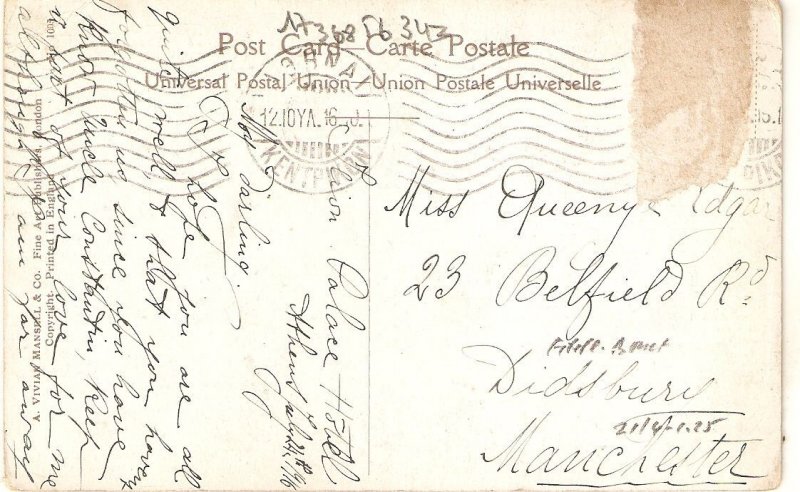 17368 F6 343
Post Card—Carte Postale
Universal Postal Union—Union Postale Universelle
12.ΙΟΥΛ.16
ΚΕΝΤΡΙΚΟΝ
A. VIVIAN MANSELL & CO. Fine Art Publishers, London
Copyright. Printed in England
Palace Hotel
Athens July 24th/16
My Darling.
I hope you are all
quite well, & that you havent
forgotten us since you have
Uncle Constantin, Keep
a part of your love for me
although I am far away
Miss Queenye Edgar
23 Belfield Rd
Didsbury
Manchester